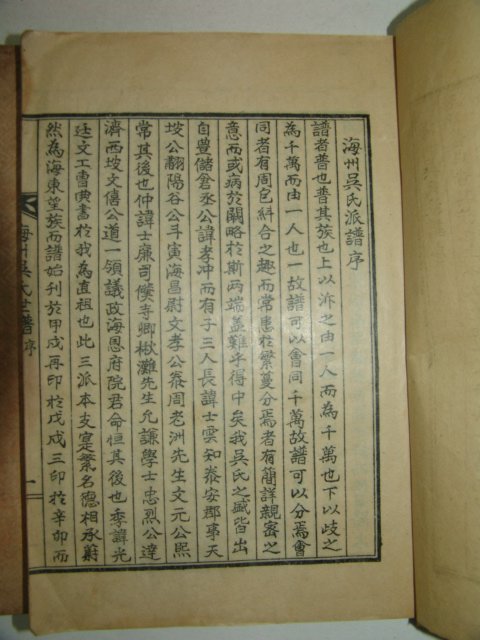 海州吳氏派譜序
譜者普也普其族也上以泝之由一人而為千萬也下以歧之
為千萬而由一人也一故譜可以會同千萬故譜可以分焉會
同者有周包綜合之趣而常患於繁蔓分焉者有簡詳親密之
意而或病於闊略於斯兩端蓋難乎得中矣我吳氏之盛皆出
自豊儲倉丞公諱孝冲而有子三人長諱士雲知泰安郡事天
坡公翻陽谷公斗寅海昌尉文孝公泰周老洲先生文元公熙
常其後也仲諱士廉司僕寺卿楸灘先生允謙學士忠烈公達
濟西坡文僖公道一領議政海恩府院君命恒其後也季諱光
廷文工曹典書於我為直祖也此三派本支寔繁名德相承蔚
然為海東望族而譜始刊於甲戌再印於戊戌三印於辛卯而
海州吳氏世譜 序 一